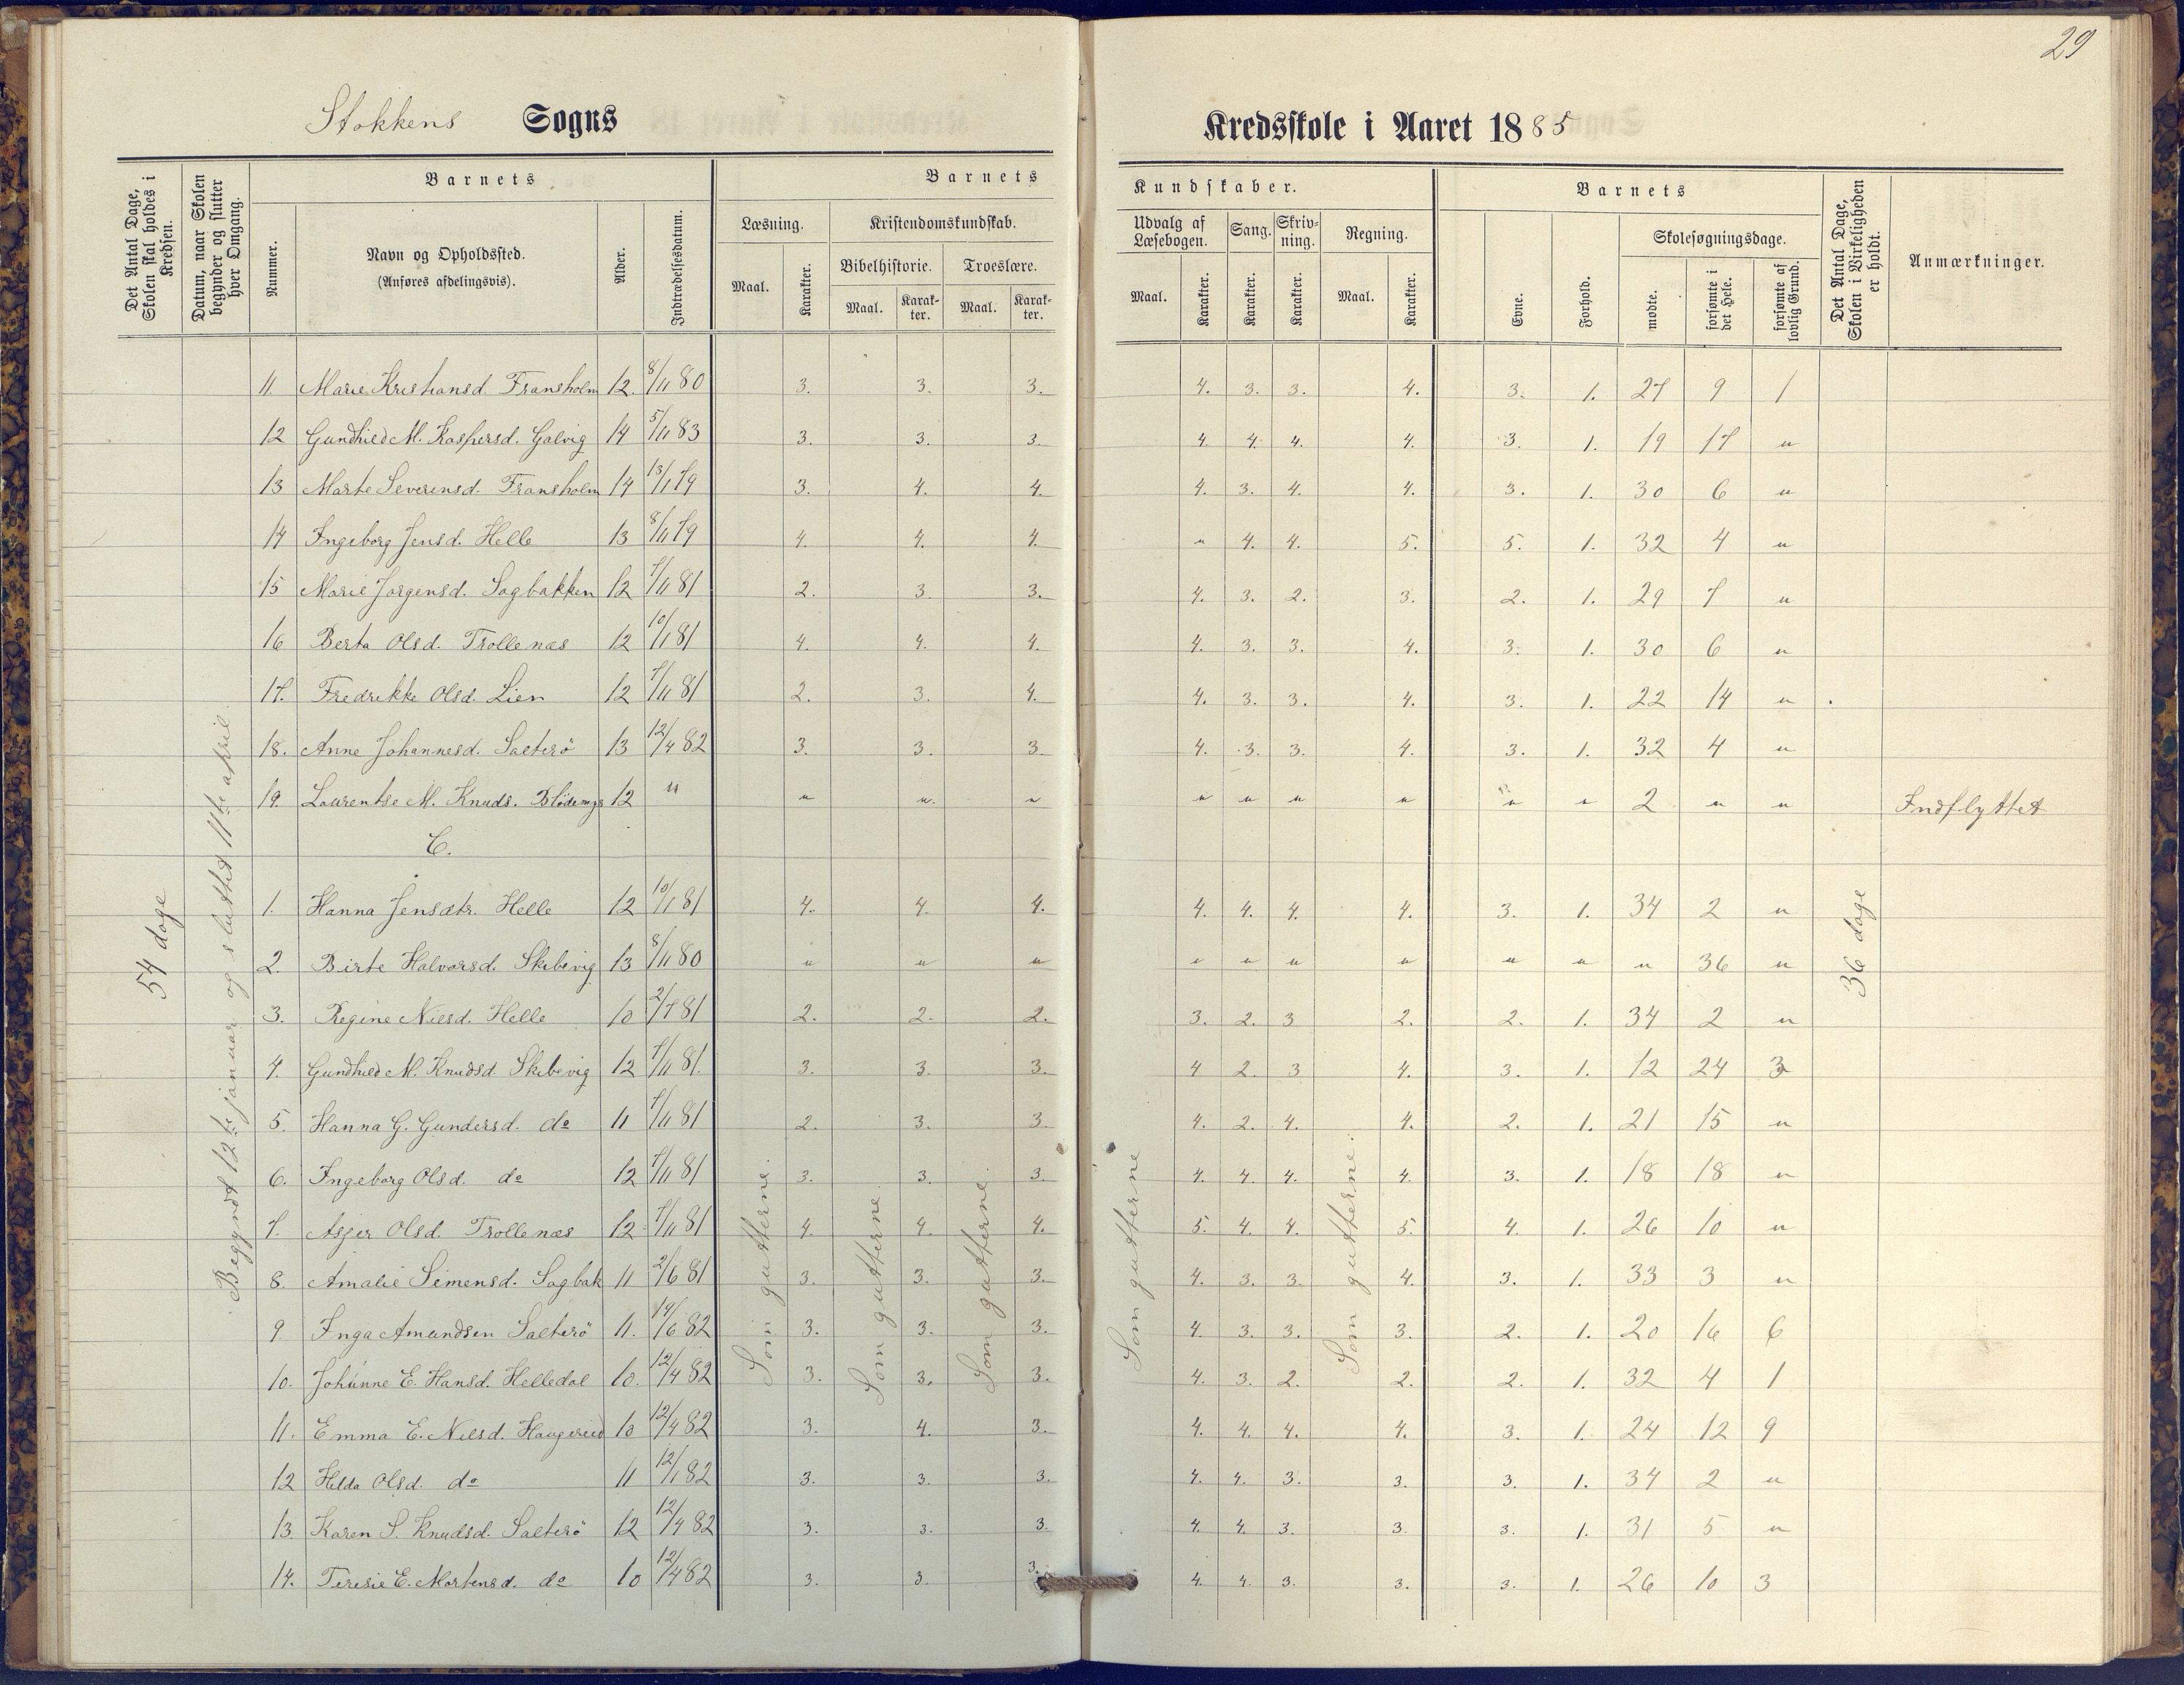 29
Stokkens Sogns Kredsskole i Aaret 1885
Det Antal Dage, Skolen skal holdes i Kredsen.
Datum, naar Skolen begynder og slutter hver Omgang.
Barnets
Nummer.
Navn og Opholdssted. (Anføres afdelingsvis).
Alder.
Indtrædelsesdatum.
Barnets Kundskaber.
Læsning. Maal. Karakter.
Kristendomskundskab.
Bibelhistorie. Maal. Karakter.
Troeslære. Maal. Karakter.
Udvalg af Læsebogen. Maal. Karakter.
Sang. Karakter.
Skrivning. Karakter.
Regning. Maal. Karakter.
Barnets
Evne.
Forhold.
Skolesøgningsdage.
mødte. forsømte i det Hele. forsømte af lovlig Grund.
Det Antal Dage, Skolen i Virkeligheden er holdt.
Anmærkninger.
11. Marie Kristiansd. Fransholm 12. 8/11 80 3. 3. 3. 4. 3. 3. 4. 3. 1. 27 9 1
12 Gundhild M. Kaspersd. Galvig 14 5/11 83 3. 3. 3. 4. 4. 4. 4. 3. 1. 19 17 "
13 Marte Severinsd. Fransholm 14 13/1 79 3. 4. 4. 4. 3. 4. 4. 3. 1. 30 6 "
14 Ingeborg Jensd. Helle 13 8/11 79 4. 4. 4. " 4. 4. 5. 5. 1. 32 4 "
15 Marie Jørgensd. Sagbakken 12 7/11 81 2. 3. 3. 4. 3. 2. 3. 2. 1. 29 7 "
16 Berta Olsd. Trollenæs 12 10/1 81 4. 4. 4. 4. 3. 3. 4. 3. 1. 30 6 "
17. Fredrikke Olsd. Lien 12 7/11 81 2. 3. 4. 4. 3. 3. 4. 3. 1. 22 14 "
18. Anne Johannesd. Salterö 13 12/4 82 3. 3. 3. 4. 3. 3. 4. 3. 1. 32 4 "
19. Laurentse M. Knuds. Blödemyr 12 " " " " " " " " " " 2 " " Indflyttet
C.
1. Hanna Jensdtr. Helle 12 10/1 81 4. 4. 4. 4. 4. 4. 4. 3. 1. 34 2 "
2. Birte Halvorsd. Skibevig 13 8/11 80 " " " " " " " " " " 36 "
3. Regine Nilsd. Helle 10 2/7 81 2. 2. 2. 3. 2. 3 2. 2. 1. 34 2 "
4. Gundhild M. Knudsd. Skibevig 12 7/11 81. 3. 3. 3. 4 2. 3 4. 3. 1. 12 24 3
5. Hanna G. Gundersd. do 11 7/11 81 2. 3. 3. 4. 2. 4. 4. 2. 1. 21 15 "
6. Ingeborg Olsd. do 12 7/11 81 3. 3. 3. 4. 4. 4. 4. 3. 1. 18 18 "
7. Asjer Olsd. Trollenæs 12 7/11 81 4. 4. 4. 5. 4. 4. 5. 4. 1. 26 10 "
8. Amalie Simensd. Sagbak 11 2/6 81 3. 3. 3. 4. 3. 3. 4. 3. 1. 33 3 "
9. Inga Amundsen Salterö 11. 14/6 82 3. 3. 3. 4. 3. 3. 3. 2. 1. 20 16 6
10. Johanne E. Hansd. Helledal 10. 12/4 82 3. 3. 3. 4. 3. 2. 2. 2. 1. 32 4 1
11. Emma E. Nilsd. Haugereid 10 12/4 82 3. 4. 3. 4. 4. 4. 4. 3. 1. 24 12 9
12 Hilda Olsd. do 11 12/1 82 3. 3. 3. 4. 4. 3. 3. 3. 1. 34 2 "
13. Karen S. Knudsd. Salterö 12 12/4 82 3. 3. 3. 4. 4. 3. 3. 3. 1. 31 5 "
14. Teresie E. Mortensd. do 10 12/4 82 3. 3. 3. 4. 4. 3. 3. 3. 1. 26 10 3
54 dage
Begyndt 12te januar og sluttet 11te april.
Som gutterne.
Som gutterne.
Som gutterne.
Som gutterne
Som gutterne.
36 dage